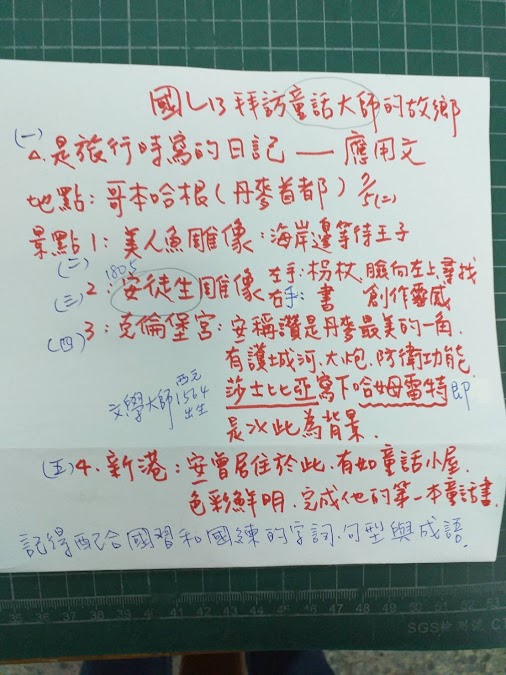 國L13拜訪童話大師的故鄉
(一)
△.是旅行時寫的日記——應用文
地點:哥本哈根(丹麥首都) 9/5(二)
景點1:美人魚雕像:海岸邊等待王子
(二) 1805
(三) 2:安徒生雕像 左手:柺杖.臉向左上尋找
右手:書 創作靈感
(四) 3:克倫堡宮:安稱讚是丹麥最美的一角.
有護城河.大炮.防衛功能.
文學大師 西元1564出生 莎士比亞寫下哈姆雷特即
是以此為背景.
(五) 4.新港:安曾居住於此.有如童話小屋.
色彩鮮明.完成他的第一本童話書.
記得配合國習和國練的字詞.句型與成語.
35 36 37 38 39 40 41 42 43 44 45 46 47 48 49 50 51 52 53
SGS檢測號 CT